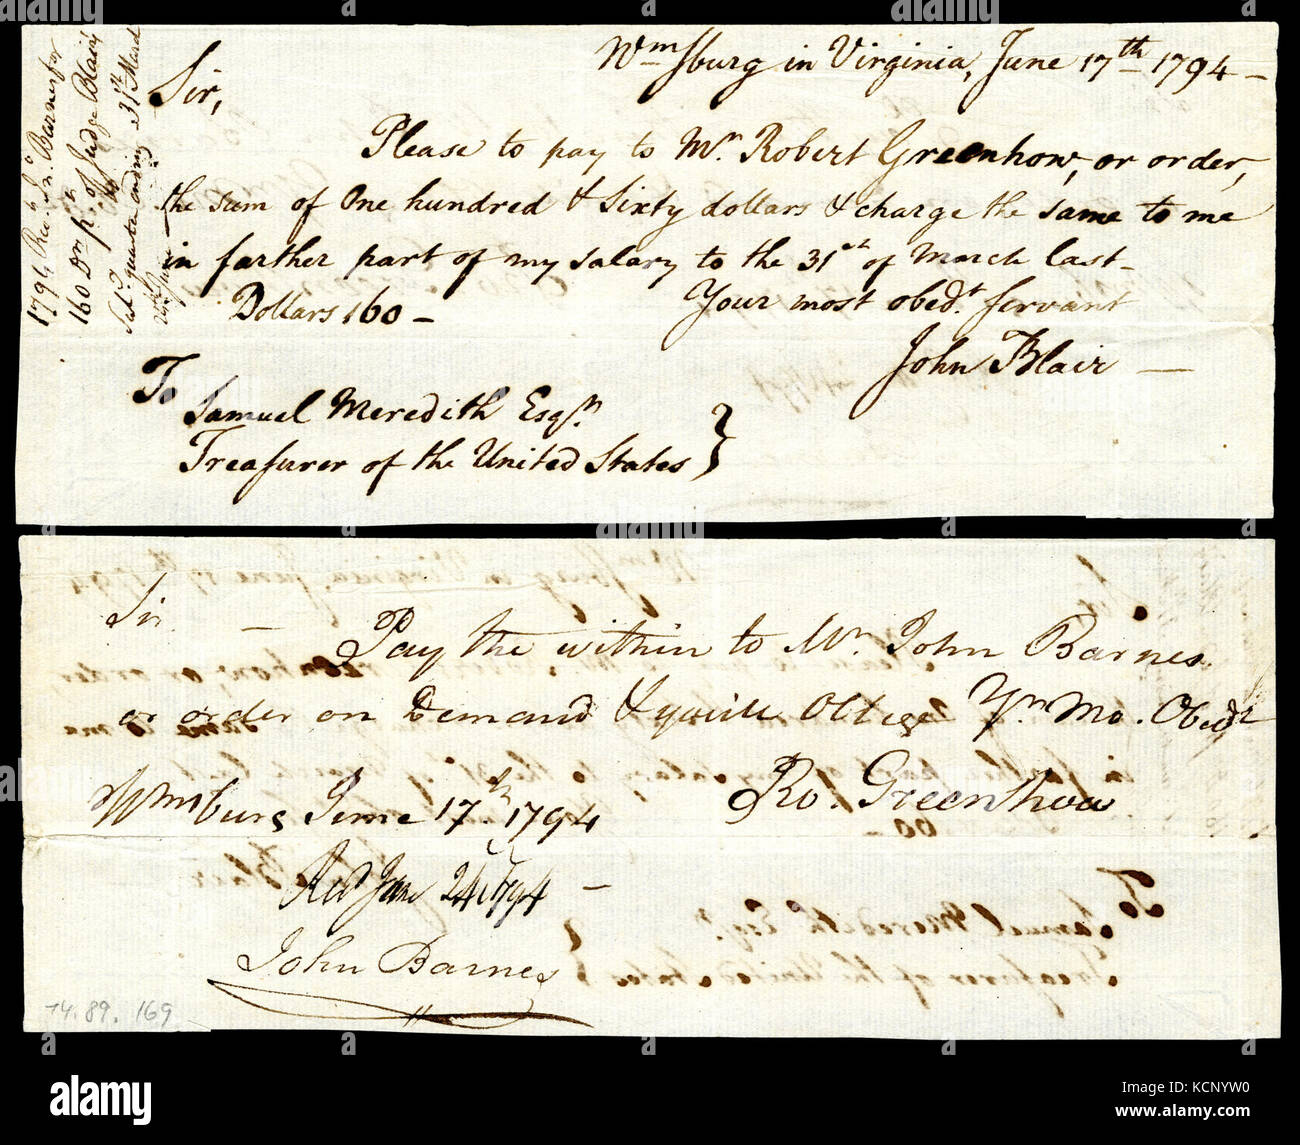 Wmsburg in Virginia, June 17th 1794 –
Sir,
Please to pay to Mr Robert Greenhow, or order,
the sum of One hundred & Sixty dollars & charge the same to me
in farther part of my salary to the 31st of March last–
Dollars 160 –
Your most obedt servant
John Blair —
To
Samuel Meredith Esqr.
Treasurer of the United States
1794 Jno Barnes for
160 Drs pt of Judge Blair's
quarter ending 31st March
Sir —
Pay the within to Mr. John Barnes
or order on Demand & you'll Oblige Yr Mo. Obedt
Ro. Greenhow
Wmsburg June 17th 1794
Recd June 24 1794 –
John Barnes
74.89.169
alamy
Image ID: KCNYW0
www.alamy.com